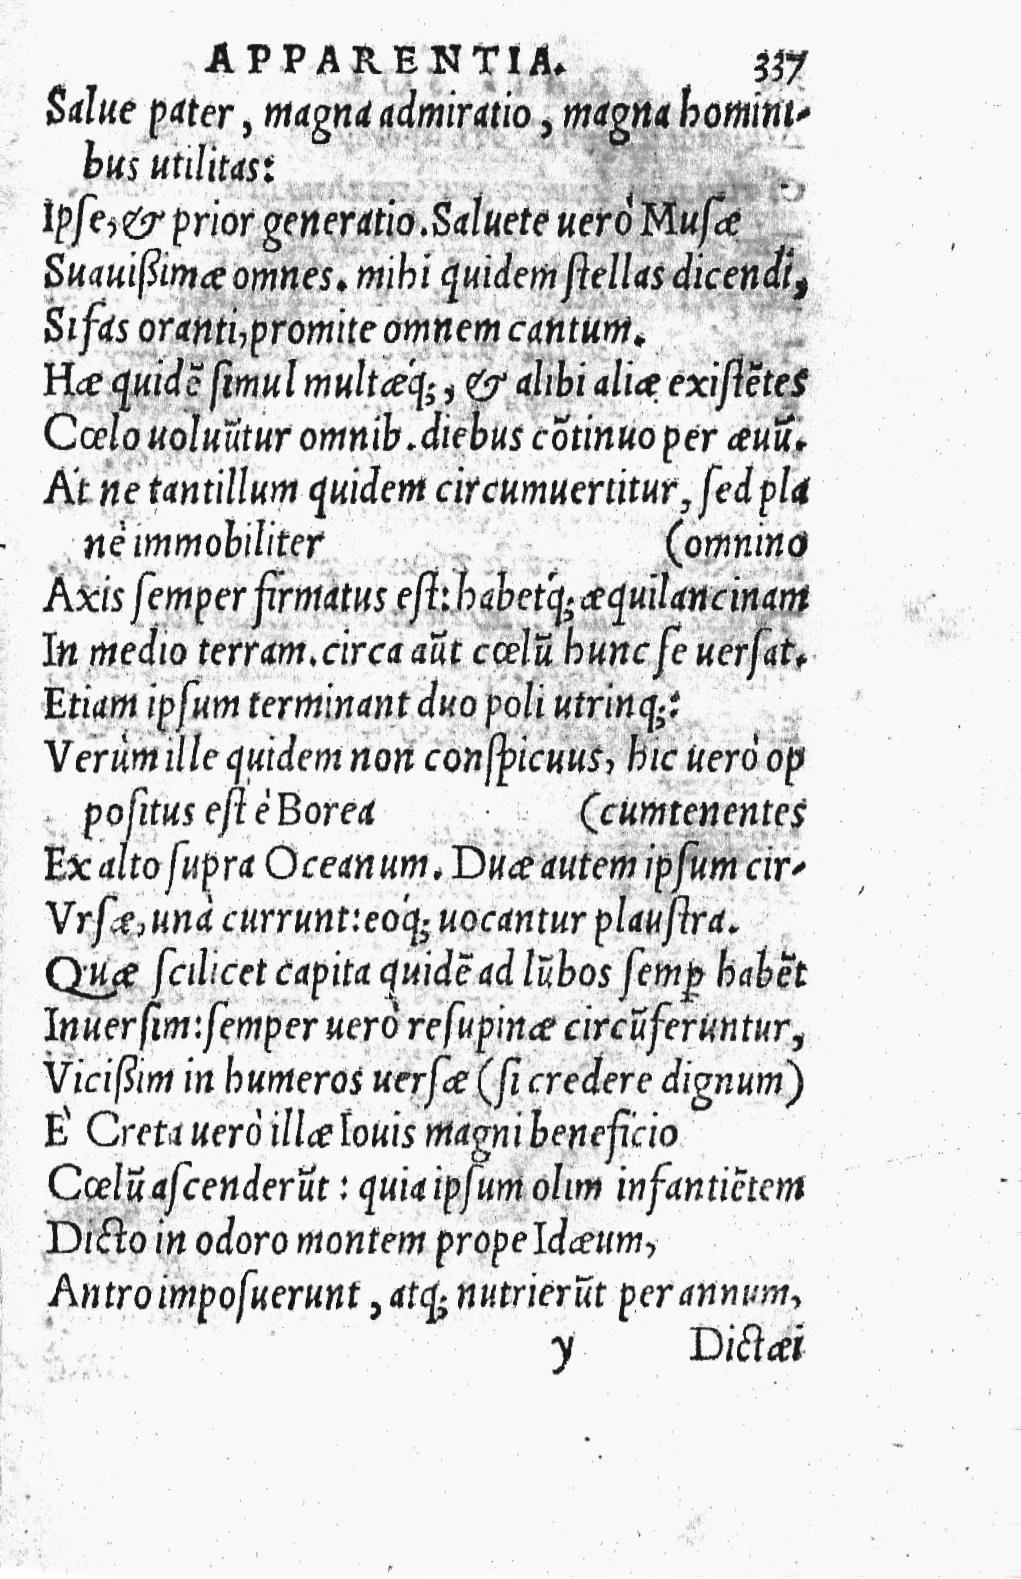 APPARENTIA. 337
Salue pater, magna admiratio, magna homini-
bus utilitas:
Ipſe, & prior generatio. Saluete uerò Muſæ
Suauißimæ omnes. mihi quidem ſtellas dicendi,
Si fas oranti, promite omnem cantum.
Hæ quidē ſimul multæq́;, & alibi aliæ exiſtētes
Cœlo uoluūtur omnib. diebus cōtinuo per æuū.
At ne tantillum quidem circumuertitur, ſed pla
nè immobiliter (omnino
Axis ſemper firmatus eſt: habetq́; æquilancinam
In medio terram. circa aūt cœlū hunc ſe uerſat.
Etiam ipſum terminant duo poli utrinq;:
Verùm ille quidem non conſpicuus, hic uerò op
poſitus eſt è Borea (cumtenentes
Ex alto ſupra Oceanum. Duæ autem ipſum cir-
Vrſæ, unà currunt: eoq́; uocantur plauſtra.
Quæ ſcilicet capita quidē ad lūbos ſemꝑ habēt
Inuerſim: ſemper uerò reſupinæ circūferuntur,
Vicißim in humeros uerſæ (ſi credere dignum)
È Creta uerò illæ Iouis magni beneficio
Cœlū aſcenderūt: quia ipſum olim infantiētem
Dicto in odoro montem prope Idæum,
Antro impoſuerunt, atq; nutrierūt per annum,
y Dictæi